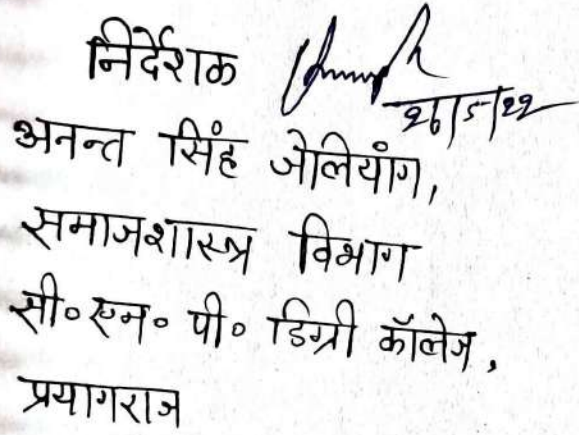 निर्देशक
26/5/22
अनन्त सिंह जेलियांग,
समाजशास्त्र विभाग
सी० एन० पी० डिग्री कॉलेज,
प्रयागराज